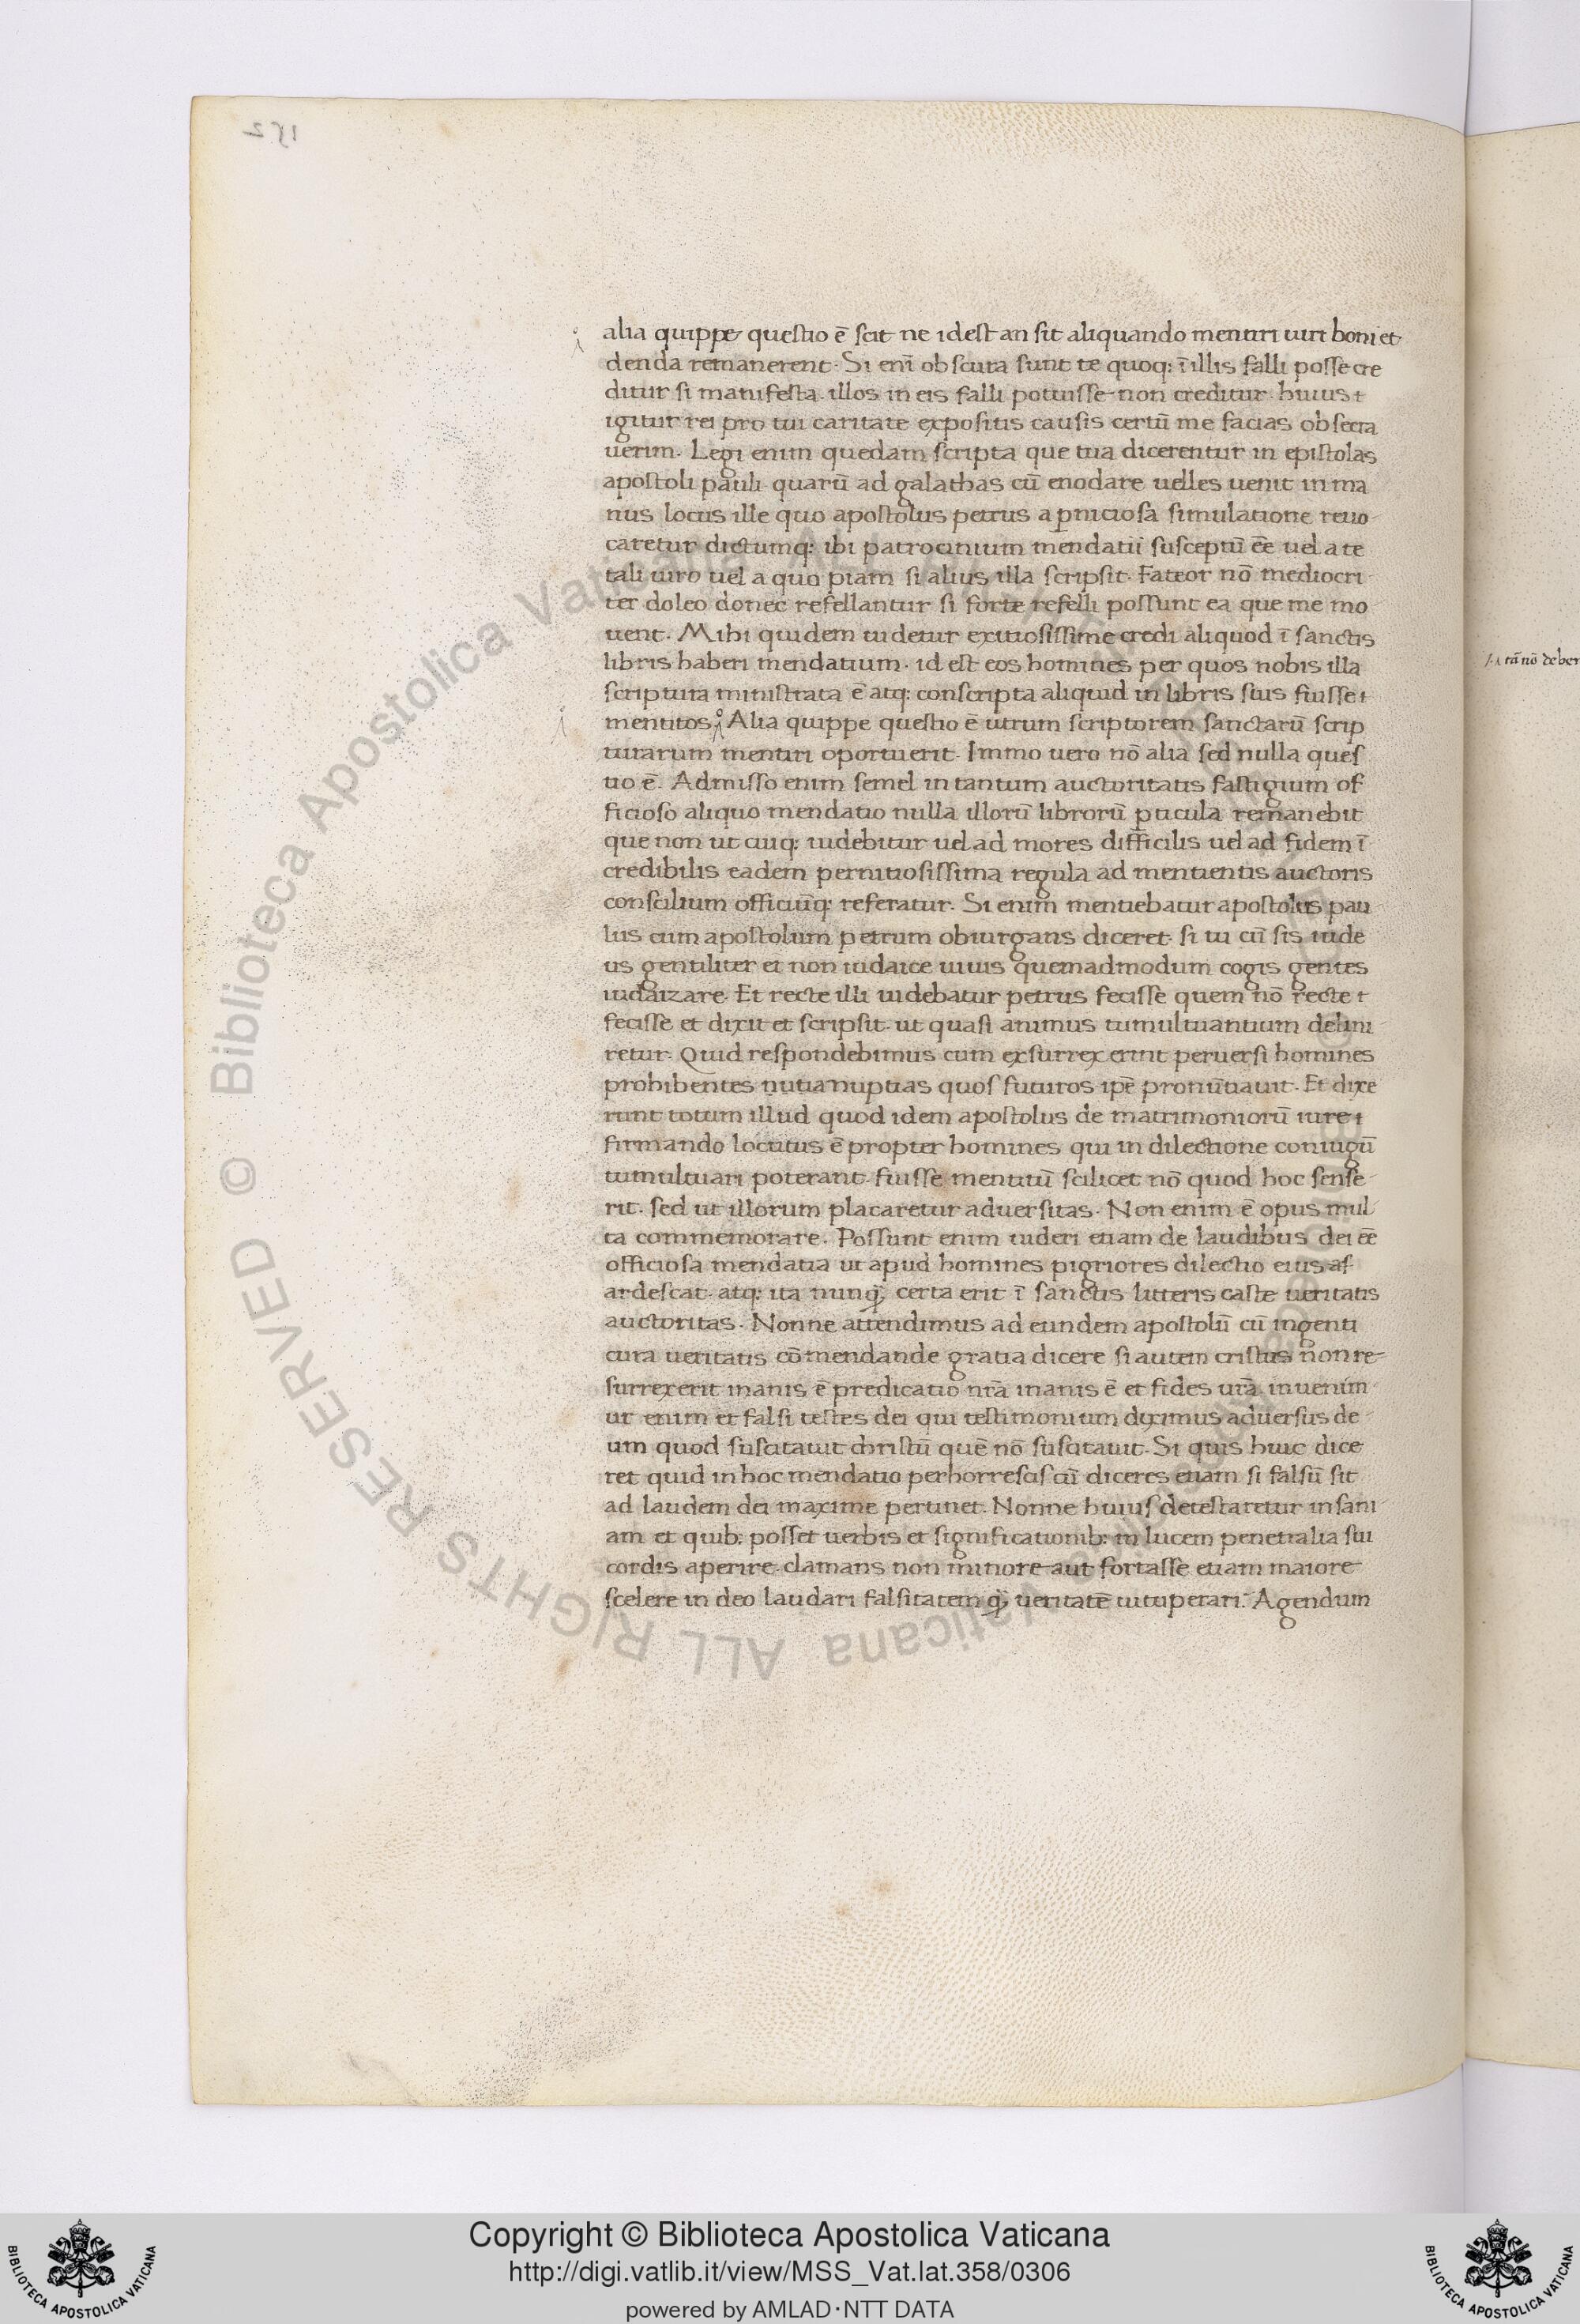 152
alia quippe questio ē scit ne idest an sit aliquando mentiri uiri boni et
denda remanerent. Si enī obscura sunt te quoq: ī illis falli posse cre
ditur si manifesta. illos in eis falli potuisse non creditur. huius
igitur rei pro tui caritate expositis causis certū me facias obsecra
uerim. Legi enim quedam scripta que tua dicerentur in epistolas
apostoli pauli quarū ad galathas cū enodare uelles uenit in ma
nus locus ille quo apostolus petrus a pniciosa simulatione reuo
caretur dictumq: ibi patrocinium mendatii susceptū eē uel a te
tali uiro uel a quo piam si alius illa scripsit. Fateor nō mediocri
ter doleo donec refellantur si forte refelli possunt ea que me mo
uent. Mihi quidem uidetur exitiosissime credi aliquod ī sanctis
libris haberi mendatium. id est eos homines per quos nobis illa
scriptura ministrata ē atq: conscripta aliquid in libris suis fuisse
mentitos. Alia quippe questio ē utrum scriptorem sanctarū scrip
turarum mentiri oportuerit. Immo uero nō alia sed nulla ques
tio ē. Admisso enim semel in tantum auctoritatis fastigium of
ficioso aliquo mendatio nulla illorū librorū pticula remanebit
que non ut cuiq: uidebitur uel ad mores difficilis uel ad fidem ī
credibilis eadem pernitiosissima regula ad mentientis auctoris
conscilium officiūq: referatur. Si enim mentiebatur apostolus pau
lus cum apostolum petrum obiurgans diceret. si tu cū sis iude
us gentiliter et non iudaice uiuis quemadmodum cogis gentes
iudaizare. Et recte illi uidebatur petrus fecisse quem nō recte
fecisse et dixit et scripsit. ut quasi animus tumultuantium delini
retur. Quid respondebimus cum exsurrexerint peruersi homines
prohibentes nutia nuptias quos futuros ipē pronūtiauit. Et dixe
runt totum illud quod idem apostolus de matrimoniorū iure
firmando locutus ē propter homines qui in dilectione coniugū
tumultuari poterant. fuisse mentitū scilicet nō quod hoc sense
rit. sed ut illorum placaretur aduersitas. Non enim ē opus mul
ta commemorare. Possunt enim uideri etiam de laudibus dei eē
officiosa mendatia ut apud homines pigriores dilectio eius af
ardescat. atq: ita nunq̄ certa erit ī sanctis litteris caste ueritatis
auctoritas. Nonne attendimus ad eundem apostolū cū ingenti
cura ueritatis cōmendande gratia dicere si autem cristus non re
surrexerit inanis ē predicatio nrā inanis ē et fides urā. inuenim
ur enim et falsi testes dei qui testimonium diximus aduersus de
um quod suscitauit christū quē nō suscitauit. Si quis huic dice
ret quid in hoc mendatio perhorrescis cū diceres etiam si falsū sit
ad laudem dei maxime pertinet. Nonne huius detestaretur insani
am et quib: posset uerbis et significationib: in lucem penetralia sui
cordis aperire. clamans non minore aut fortasse etiam maiore
scelere in deo laudari falsitatem q̄ ueritatē uituperari. Agendum
© Biblioteca Apostolica Vaticana ALL RIGHTS RESERVED
Copyright © Biblioteca Apostolica Vaticana
http://digi.vatlib.it/view/MSS_Vat.lat.358/0306
powered by AMLAD·NTT DATA
BIBLIOTECA APOSTOLICA VATICANA
BIBLIOTECA APOSTOLICA VATICANA